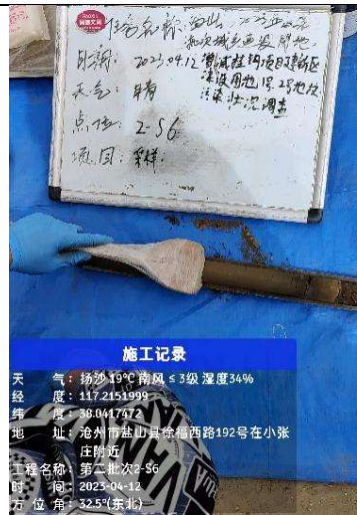 任务名称: 盐山
批次城乡建设用地
日期: 2023.04.12
建设用地1号、2号地块
天气: 晴
污染状况调查
点位: 2-S6
项目: 采样
施工记录
天 气: 扬沙 19℃ 南风 ≤ 3级 湿度34%
经 度: 117.2151999
纬 度: 38.0417472
地 址: 沧州市盐山县徐福西路192号在小张
庄附近
工程名称: 第二批次2-S6
时 间: 2023-04-12
方 位 角: 32.5°(东北)